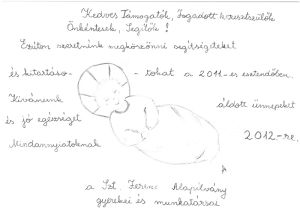 Kedves Támogatók, Fogadott keresztszülők
Önkéntesek, Segítők!
Ezúton szeretnénk megköszönni segítségdeket
és kitartáso- tokat a 2011-es esztendőben.
Kívánunk áldott ünnepeket
és jó egészséget 2012-re.
Mindannyiotoknak
a Szt. Ferenc Alapítvány
gyerekei és munkatársai